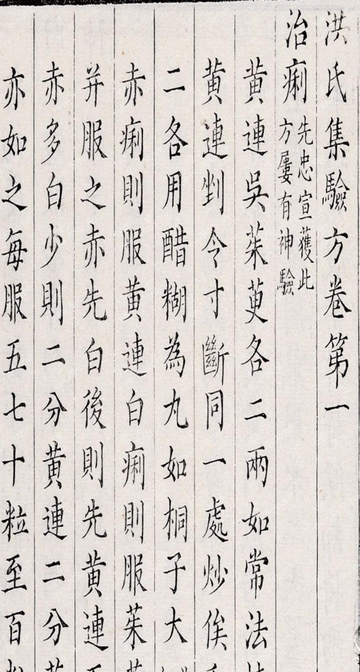 洪氏集驗方卷第一
治痢先忠宣獲此
方屢有神驗
黃連吳茱萸各二兩如常法
黃連剉令寸斷同一處炒俟
二各用醋糊為丸如桐子大
赤痢則服黃連白痢則服茱
并服之赤先白後則先黃連
赤多白少則二分黃連二分
亦如之每服五七十粒至百